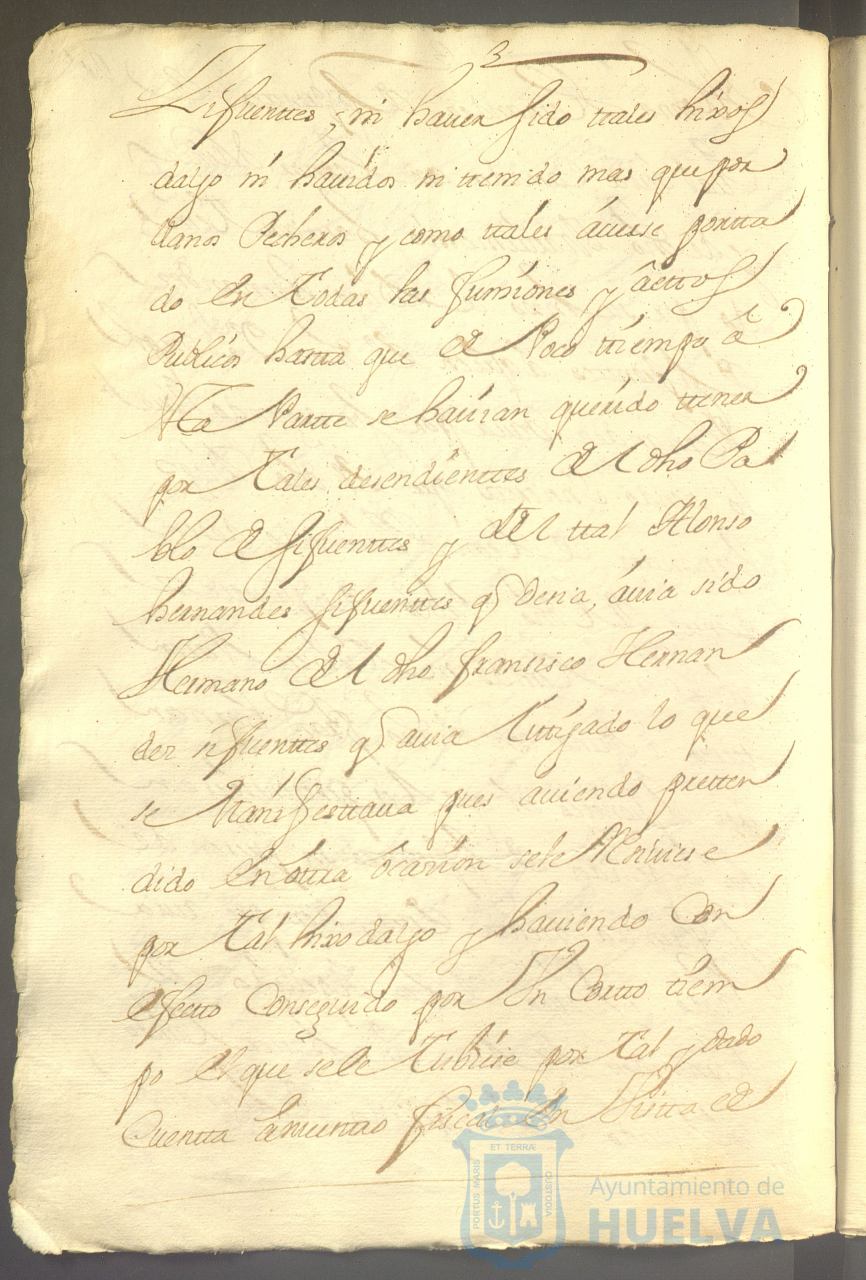 3
Sifuenttes, ni haver sido ttales hixos
dalgo ni havidos ni ttenido mas que por
llanos Pecheros y como ttales áverse portta
do en Todas las funsiones y actos
Publicos hastta que de Poco ttiempo á
Partte se havian querido ttener
por Tales desendienttes del dho Pa
blo de Sifuenttes y del ttal Alonso
hernandes sifuenttes q desia, ávia sido
Hermano del dho fransisco Hernan
dez sifuenttes q avia Littigado lo que
se Manifesttava pues aviendo pretten
dido en ottra ocasion sele
por Tal hixo dalgo y haviendo Con
efecto Conseguido por Un Cortto tiem
po el que se le Tubiese por Tal y dado
Cuentta fiscal en Vistta de
PORTUS MARIS
ET TERRÆ
CUSTODIA
Ayuntamiento de
HUELVA